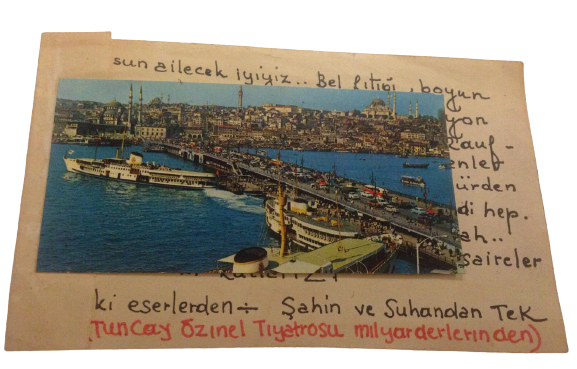 sun ailecek iyiyiz.. Bel fıtığı, boyun
yon
kauf-
enler
ürden
di hep.
ah..
saireler
ki eserlerden÷ Şahin ve Suhandan Tek
(Tuncay Özinel Tiyatrosu milyarderlerinden)